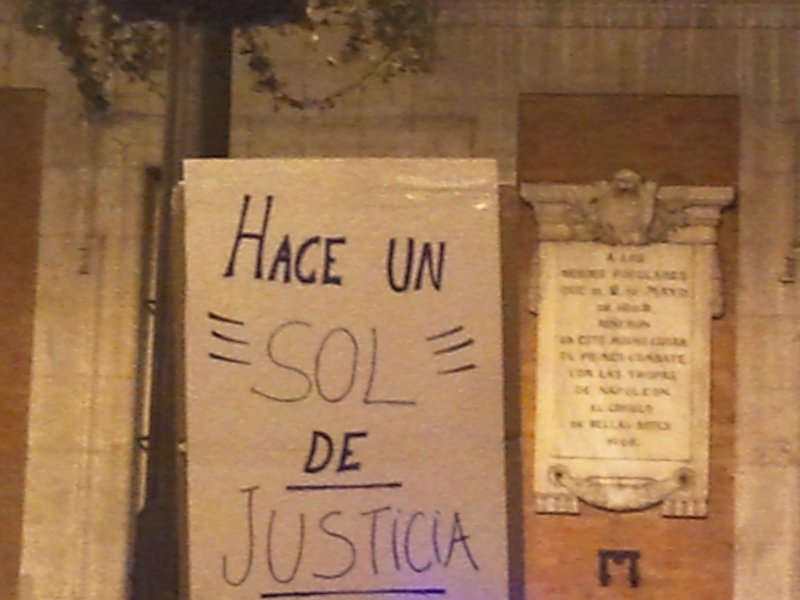 HACE UN
SOL
DE
JUSTICIA
A LOS
HEROES POPULARES
QUE EL 2 DE MAYO
DE 1808
RIÑERON
EN ESTE MISMO LUGAR
EL PRIMER COMBATE
CON LAS TROPAS
DE NAPOLEON
EL CIRCULO
DE BELLAS ARTES
1908